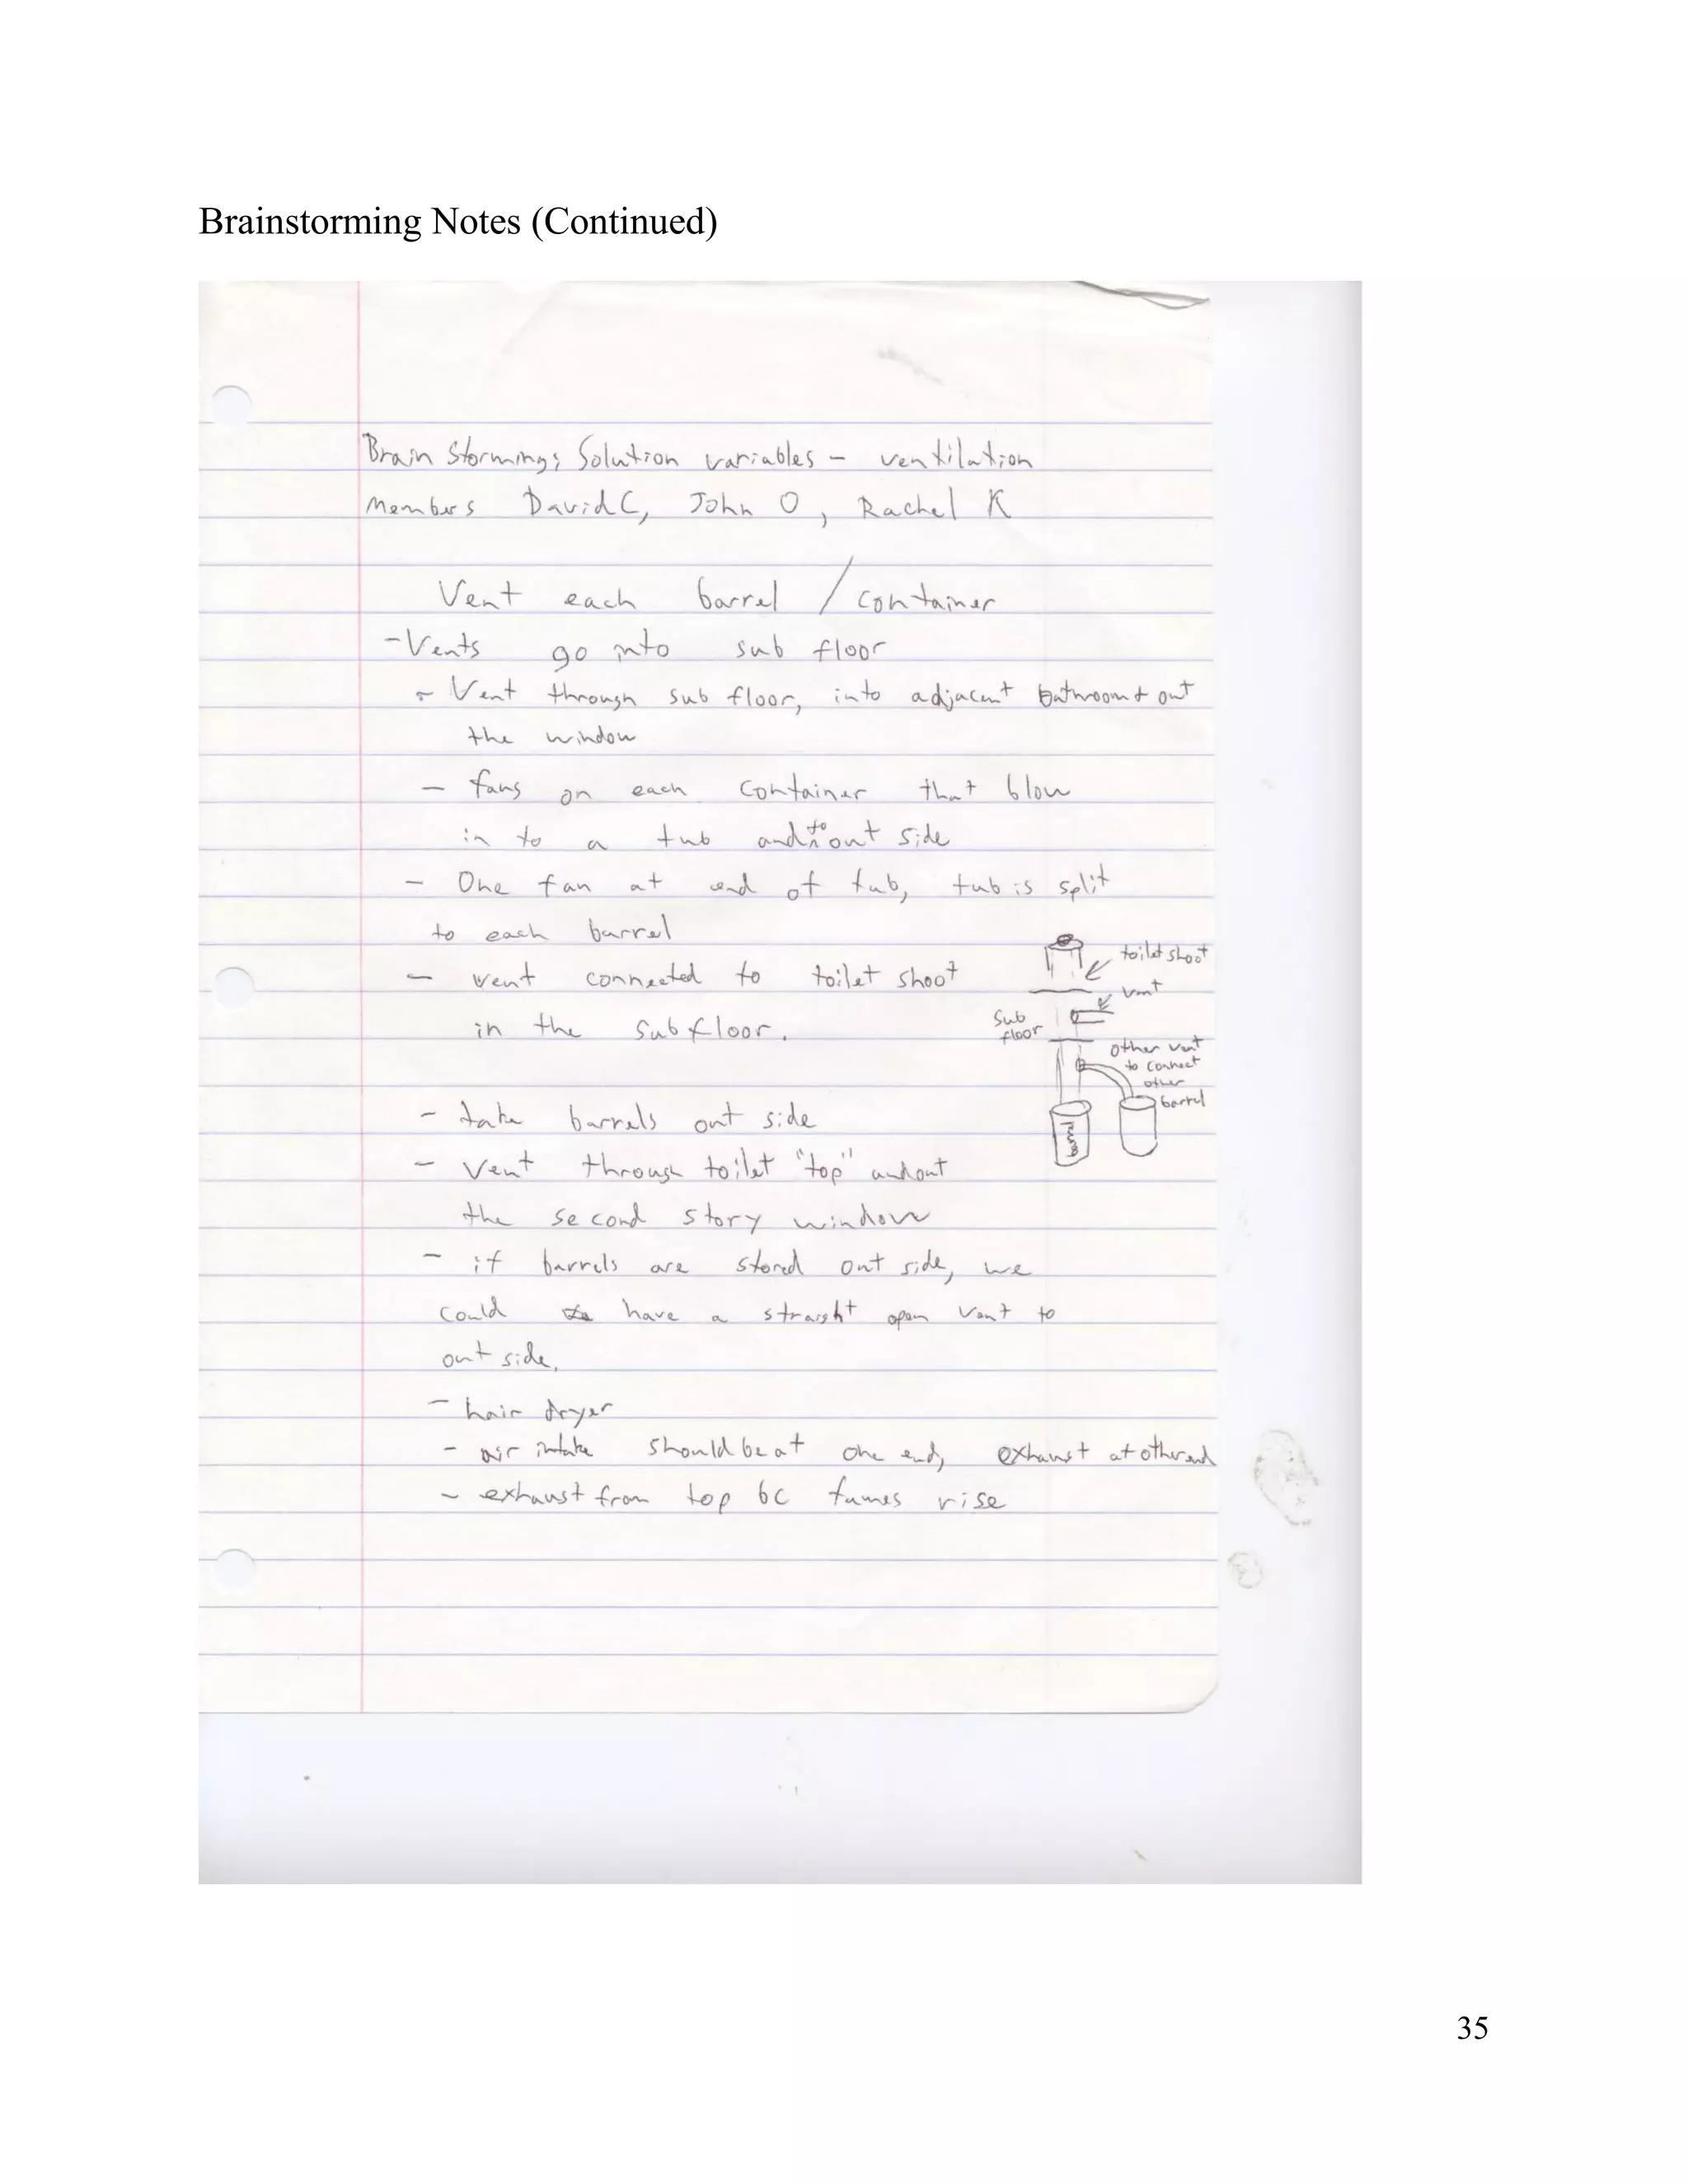 Brainstorming Notes (Continued)
Brain Storming; Solution variables - ventilation
Members David C, John O, Rachel K
Vent each barrel / container
- Vents go into sub floor
- Vent through sub floor, into adjacent bathroom & out
the window
- fans on each container that blow
in to a tub and to out side
- One fan at end of tub, tub is split
to each barrel
- vent connected to toilet shoot
in the subfloor.
toilet shoot
vent
Sub
floor
other vent
to connect
other
barrel
barrel
- take barrels out side
- vent through toilet "top" and out
the second story window
- if barrels are stored out side, we
could have a straight open vent to
out side.
- hair dryer
- air intake should be at one end, exhaust at other end
- exhaust from top bc fumes rise
35